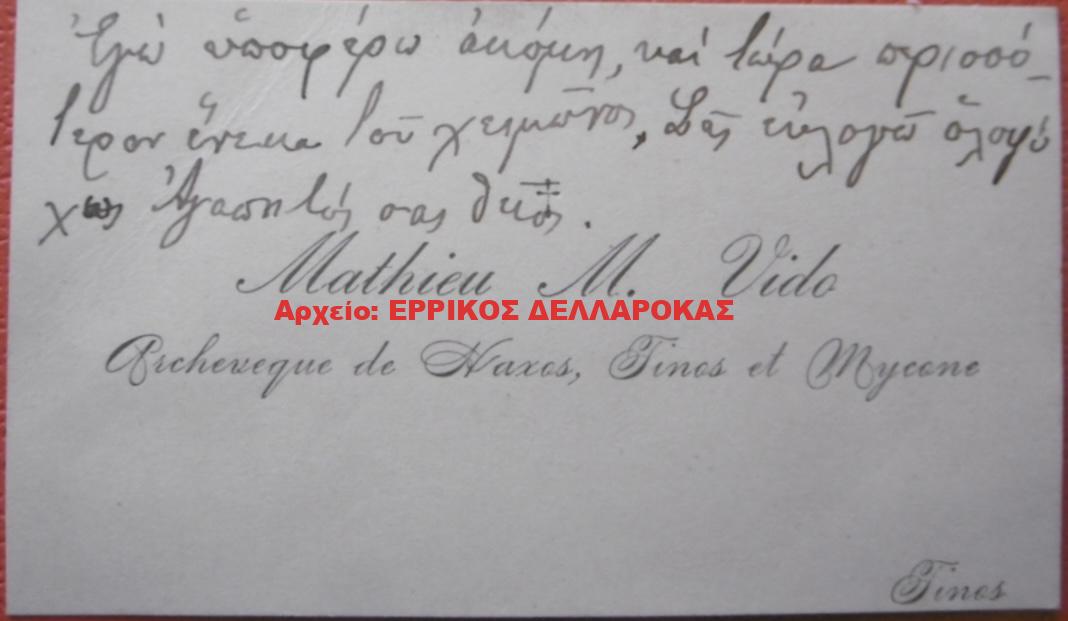 Ἐγὼ ὑποφέρω ἀκόμη, καὶ τώρα περισσό-
τερον ἕνεκα τοῦ χειμῶνος, Σᾶς εὐλογῶ ὁλοψύ
χως Ἀγαπητός σας
Mathieu M. Vido
Αρχείο: ΕΡΡΙΚΟΣ ΔΕΛΛΑΡΟΚΑΣ
Archeveque de Naxos, Tinos et Mycone
Tinos